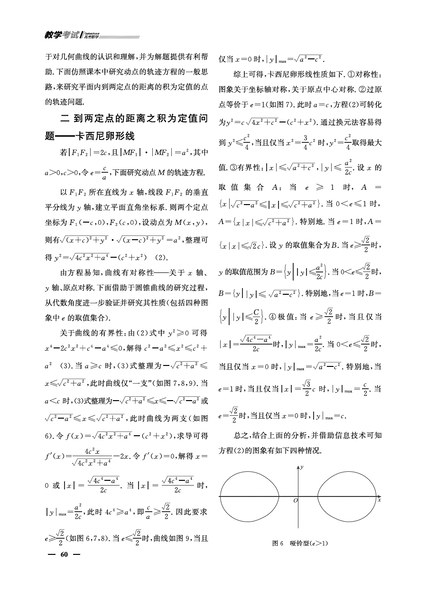 教学考试
于对几何曲线的认识和理解,并为解题提供有利帮
助.下面仿照课本中研究动点的轨迹方程的一般思
路,来研究平面内到两定点的距离的积为定值的点
的轨迹问题.
二 到两定点的距离之积为定值问
题——卡西尼卵形线
若|F₁F₂|=2c,且|MF₁|·|MF₂|=a²,其中
a>0,c>0,令e=c/a,下面研究动点M的轨迹方程.
以F₁F₂所在直线为x轴,线段F₁F₂的垂直
平分线为y轴,建立平面直角坐标系.则两个定点
坐标为F₁(-c,0),F₂(c,0),设动点为M(x,y),
则有√((x+c)²+y²)·√((x-c)²+y²)=a²,整理可
得y²=√(4c²x²+a⁴)-(c²+x²) (2).
由方程易知,曲线有对称性——关于x轴、
y轴、原点对称.下面借助于圆锥曲线的研究过程,
从代数角度进一步验证并研究其性质(包括四种图
象中e的取值集合).
关于曲线的有界性:由(2)式中y²≥0可得
x⁴-2c²x²+c⁴-a⁴≤0,解得c²-a²≤x²≤c²+
a² (3).当a≥c时,(3)式整理为-√(c²+a²)≤
x≤√(c²+a²),此时曲线仅“一支”(如图7,8,9).当
a<c时,(3)式整理为-√(c²+a²)≤x≤-√(c²-a²)或
√(c²-a²)≤x≤√(c²+a²),此时曲线为两支(如图
6).令f(x)=√(4c²x²+a⁴)-(c²+x²),求导可得
f′(x)=4c²x/√(4c²x²+a⁴)-2x.令f′(x)=0,解得x=
0或|x|=√(4c⁴-a⁴)/2c.当|x|=√(4c⁴-a⁴)/2c时,
|y|max=a²/2c,此时4c⁴≥a⁴,即c/a≥√2/2.因此要求
e≥√2/2(如图6,7,8).当e≤√2/2时,曲线如图9,当且
仅当x=0时,|y|max=√(a²-c²).
综上可得,卡西尼卵形线性质如下.①对称性:
图象关于坐标轴对称,关于原点中心对称.②过原
点等价于e=1(如图7).此时a=c,方程(2)可转化
为y²=c√(4x²+c²)-(c²+x²).通过换元法容易得
到y²≤c²/4,当且仅当x²=3/4c²时,y²=c²/4取得最大
值.③有界性:|x|≤√(a²+c²),|y|≤a²/2c.设x的
取值集合A:当e≥1时,A=
{x|√(c²-a²)≤|x|≤√(c²+a²)}.当0<e≤1时,
A={x||x|≤√(c²+a²)}.特别地,当e=1时,A=
{x||x|≤√2c}.设y的取值集合为B.当e≥√2/2时,
y的取值范围为B={y||y|≤a²/2c}.当0<e≤√2/2时,
B={y||y|≤√(a²-c²)}.特别地,当e=1时,B=
{y||y|≤C/2}.④极值:当e≥√2/2时,当且仅当
|x|=√(4c⁴-a⁴)/2c时,|y|max=a²/2c.当0<e≤√2/2时,
当且仅当x=0时,|y|max=√(a²-c²).特别地,当
e=1时,当且仅当|x|=√3/2c时,|y|max=c/2.当
e=√2/2时,当且仅当x=0时,|y|max=c.
总之,结合上面的分析,并借助信息技术可知
方程(2)的图象有如下四种情况.
y
O
x
图6 哑铃型(e>1)
— 60 —